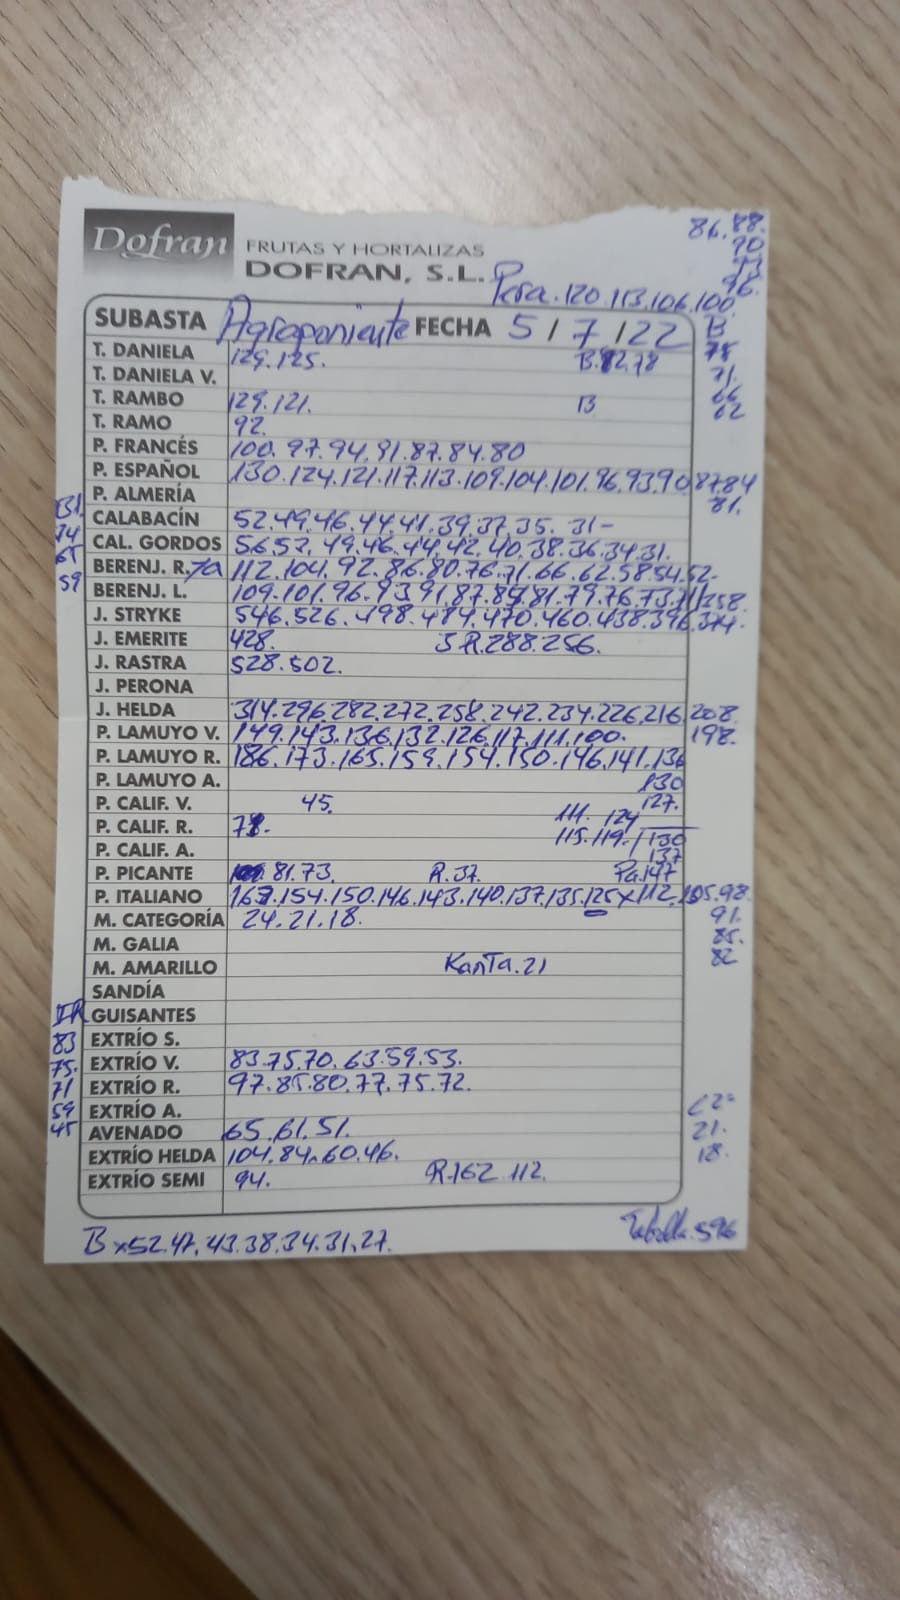 Dofran FRUTAS Y HORTALIZAS
DOFRAN, S.L.
86.88.
90
93
96.
Pera.120.113.106.100.
SUBASTA Agroponiente FECHA 5/7/22
B
78
71.
66
62
T. DANIELA 129.125. B.82.78
T. DANIELA V.
T. RAMBO 129.121. B
T. RAMO 92.
P. FRANCÉS 100.97.94.91.87.84.80
P. ESPAÑOL 130.124.121.117.113.109.104.101.96.93.90.87.84
81.
P. ALMERÍA
B1.
74
65
59
CALABACÍN 52.49.46.44.41.39.37.35.31-
CAL. GORDOS 56.52.49.46.44.42.40.38.36.34.31.
BERENJ. R. 112.104.92.86.80.76.71.66.62.58.54.52-
BERENJ. L. 109.101.96.93.91.87.84.81.79.76.73.71/
J. STRYKE 546.526.498.484.470.460.438.396.374.
358.
J. EMERITE 428. S R.288.256.
J. RASTRA 528.502.
J. PERONA
J. HELDA 314.296.282.272.258.242.234.226.216.208.
198.
P. LAMUYO V. 149.143.136.132.126.117.111.100.
P. LAMUYO R. 186.173.165.159.154.150.146.141.136
130
127.
P. LAMUYO A.
P. CALIF. V. 45. 111. 124
P. CALIF. R. 115.119./130
137
P. CALIF. A.
P. PICANTE 81.73. R.37. Pa.147
P. ITALIANO 154.150.146.143.140.137.135.125x112.105.98.
91.
85.
82
M. CATEGORÍA 24.21.18.
M. GALIA
M. AMARILLO Kanta.21
SANDÍA
GUISANTES
83
75.
71
59
45
EXTRÍO S.
EXTRÍO V. 83.75.70.63.59.53.
EXTRÍO R. 97.85.80.77.75.72.
EXTRÍO A.
AVENADO 65.61.51.
21.
18.
EXTRÍO HELDA 104.84.60.46.
EXTRÍO SEMI 94. R.162.112.
B x52.47.43.38.34.31.27.
596